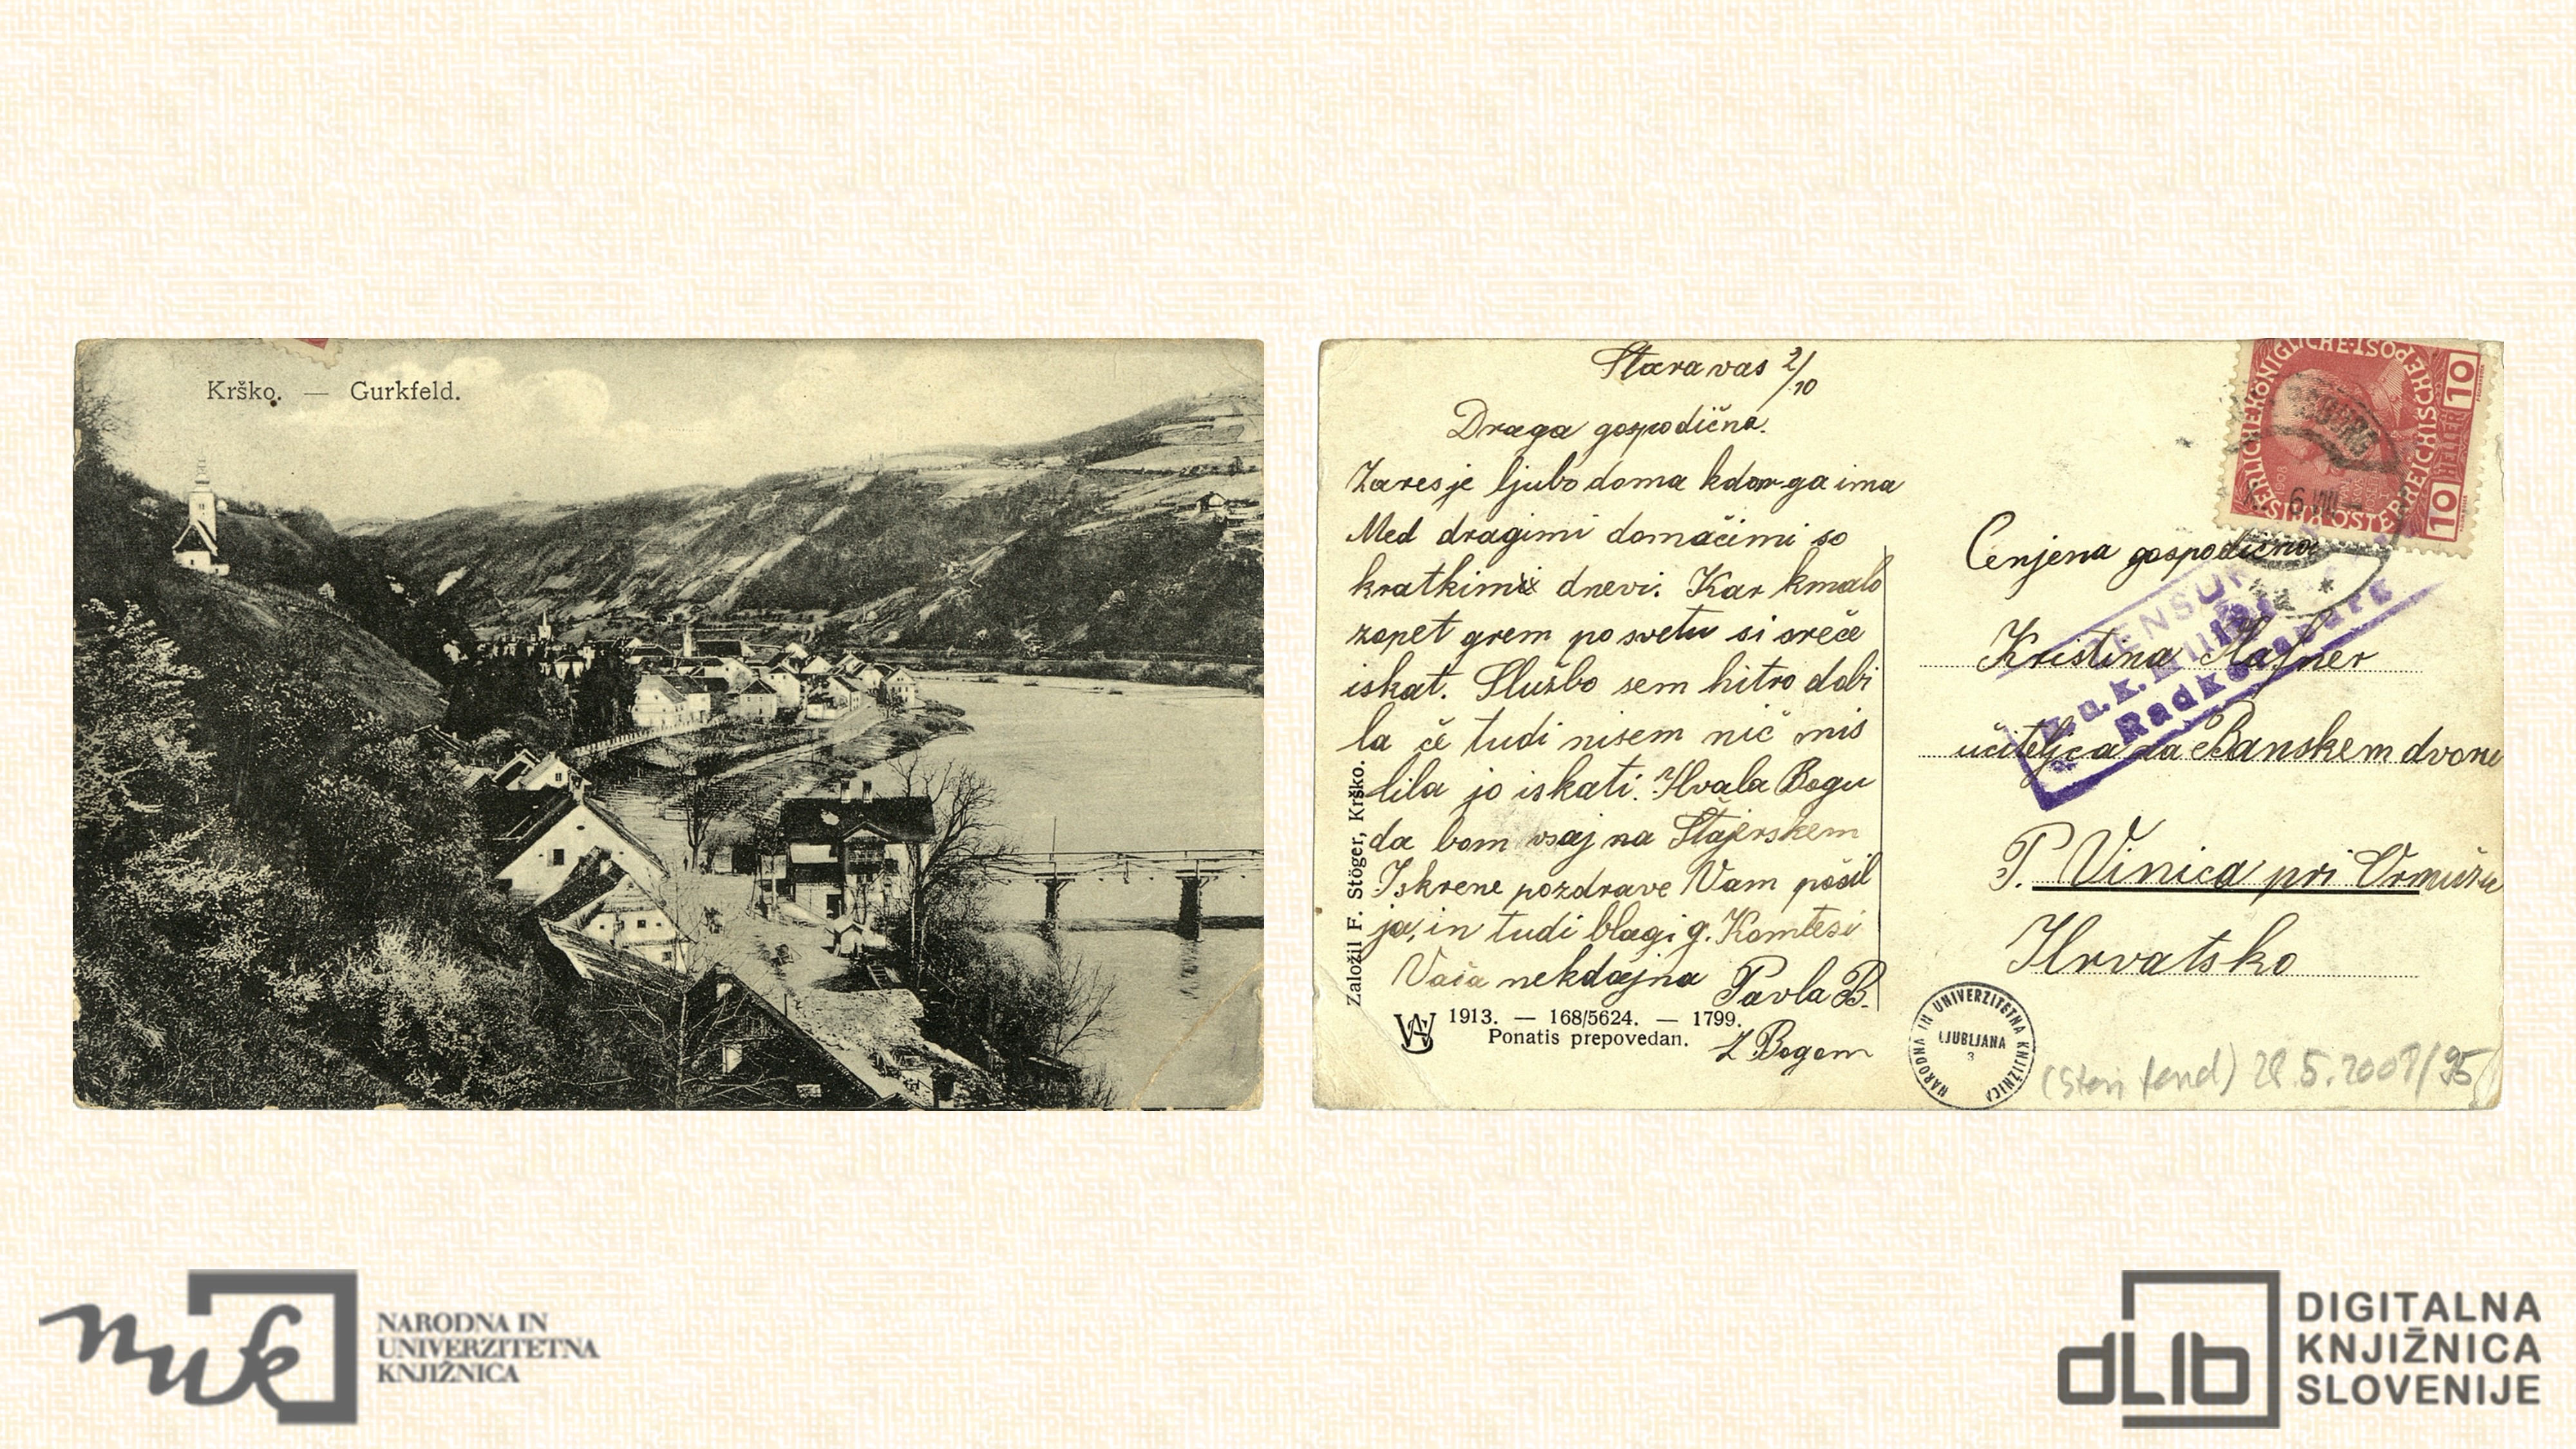 Krško. — Gurkfeld.
Stara vas 2/10
Draga gospodična.
Zares je ljubo doma kdor ga ima
Med dragimi domačimi so
kratkimi dnevi. Kar kmalo
zopet grem po svetu si sreče
iskat. Službo sem hitro dobi
la če tudi nisem nič mis
lila jo iskati. Hvala Bogu
da bom vsaj na Štajerskem
Iskrene pozdrave Vam pošil
ja, in tudi blagi g. Komtesi
Vaša nekdajna Pavla B.
Z Bogom
Založil F. Stöger, Krško.
1913. — 168/5624. — 1799.
Ponatis prepovedan.
KAISERLICHE KÖNIGLICHE ÖSTERREICHISCHE POST
10 HELLER 10
1908
6 VIII
Cenjena gospodična
Kristina Hafner
učiteljca na Banskem dvoru
P. Vinica pri Ormužu
Hrvatsko
ZENSUR
k.u.k.
Radkersburg
NARODNA IN UNIVERZITETNA KNJIŽNICA
LJUBLJANA
3
(Stari fond) 28.5.2008/95
nuk
NARODNA IN
UNIVERZITETNA
KNJIŽNICA
dLib
DIGITALNA
KNJIŽNICA
SLOVENIJE